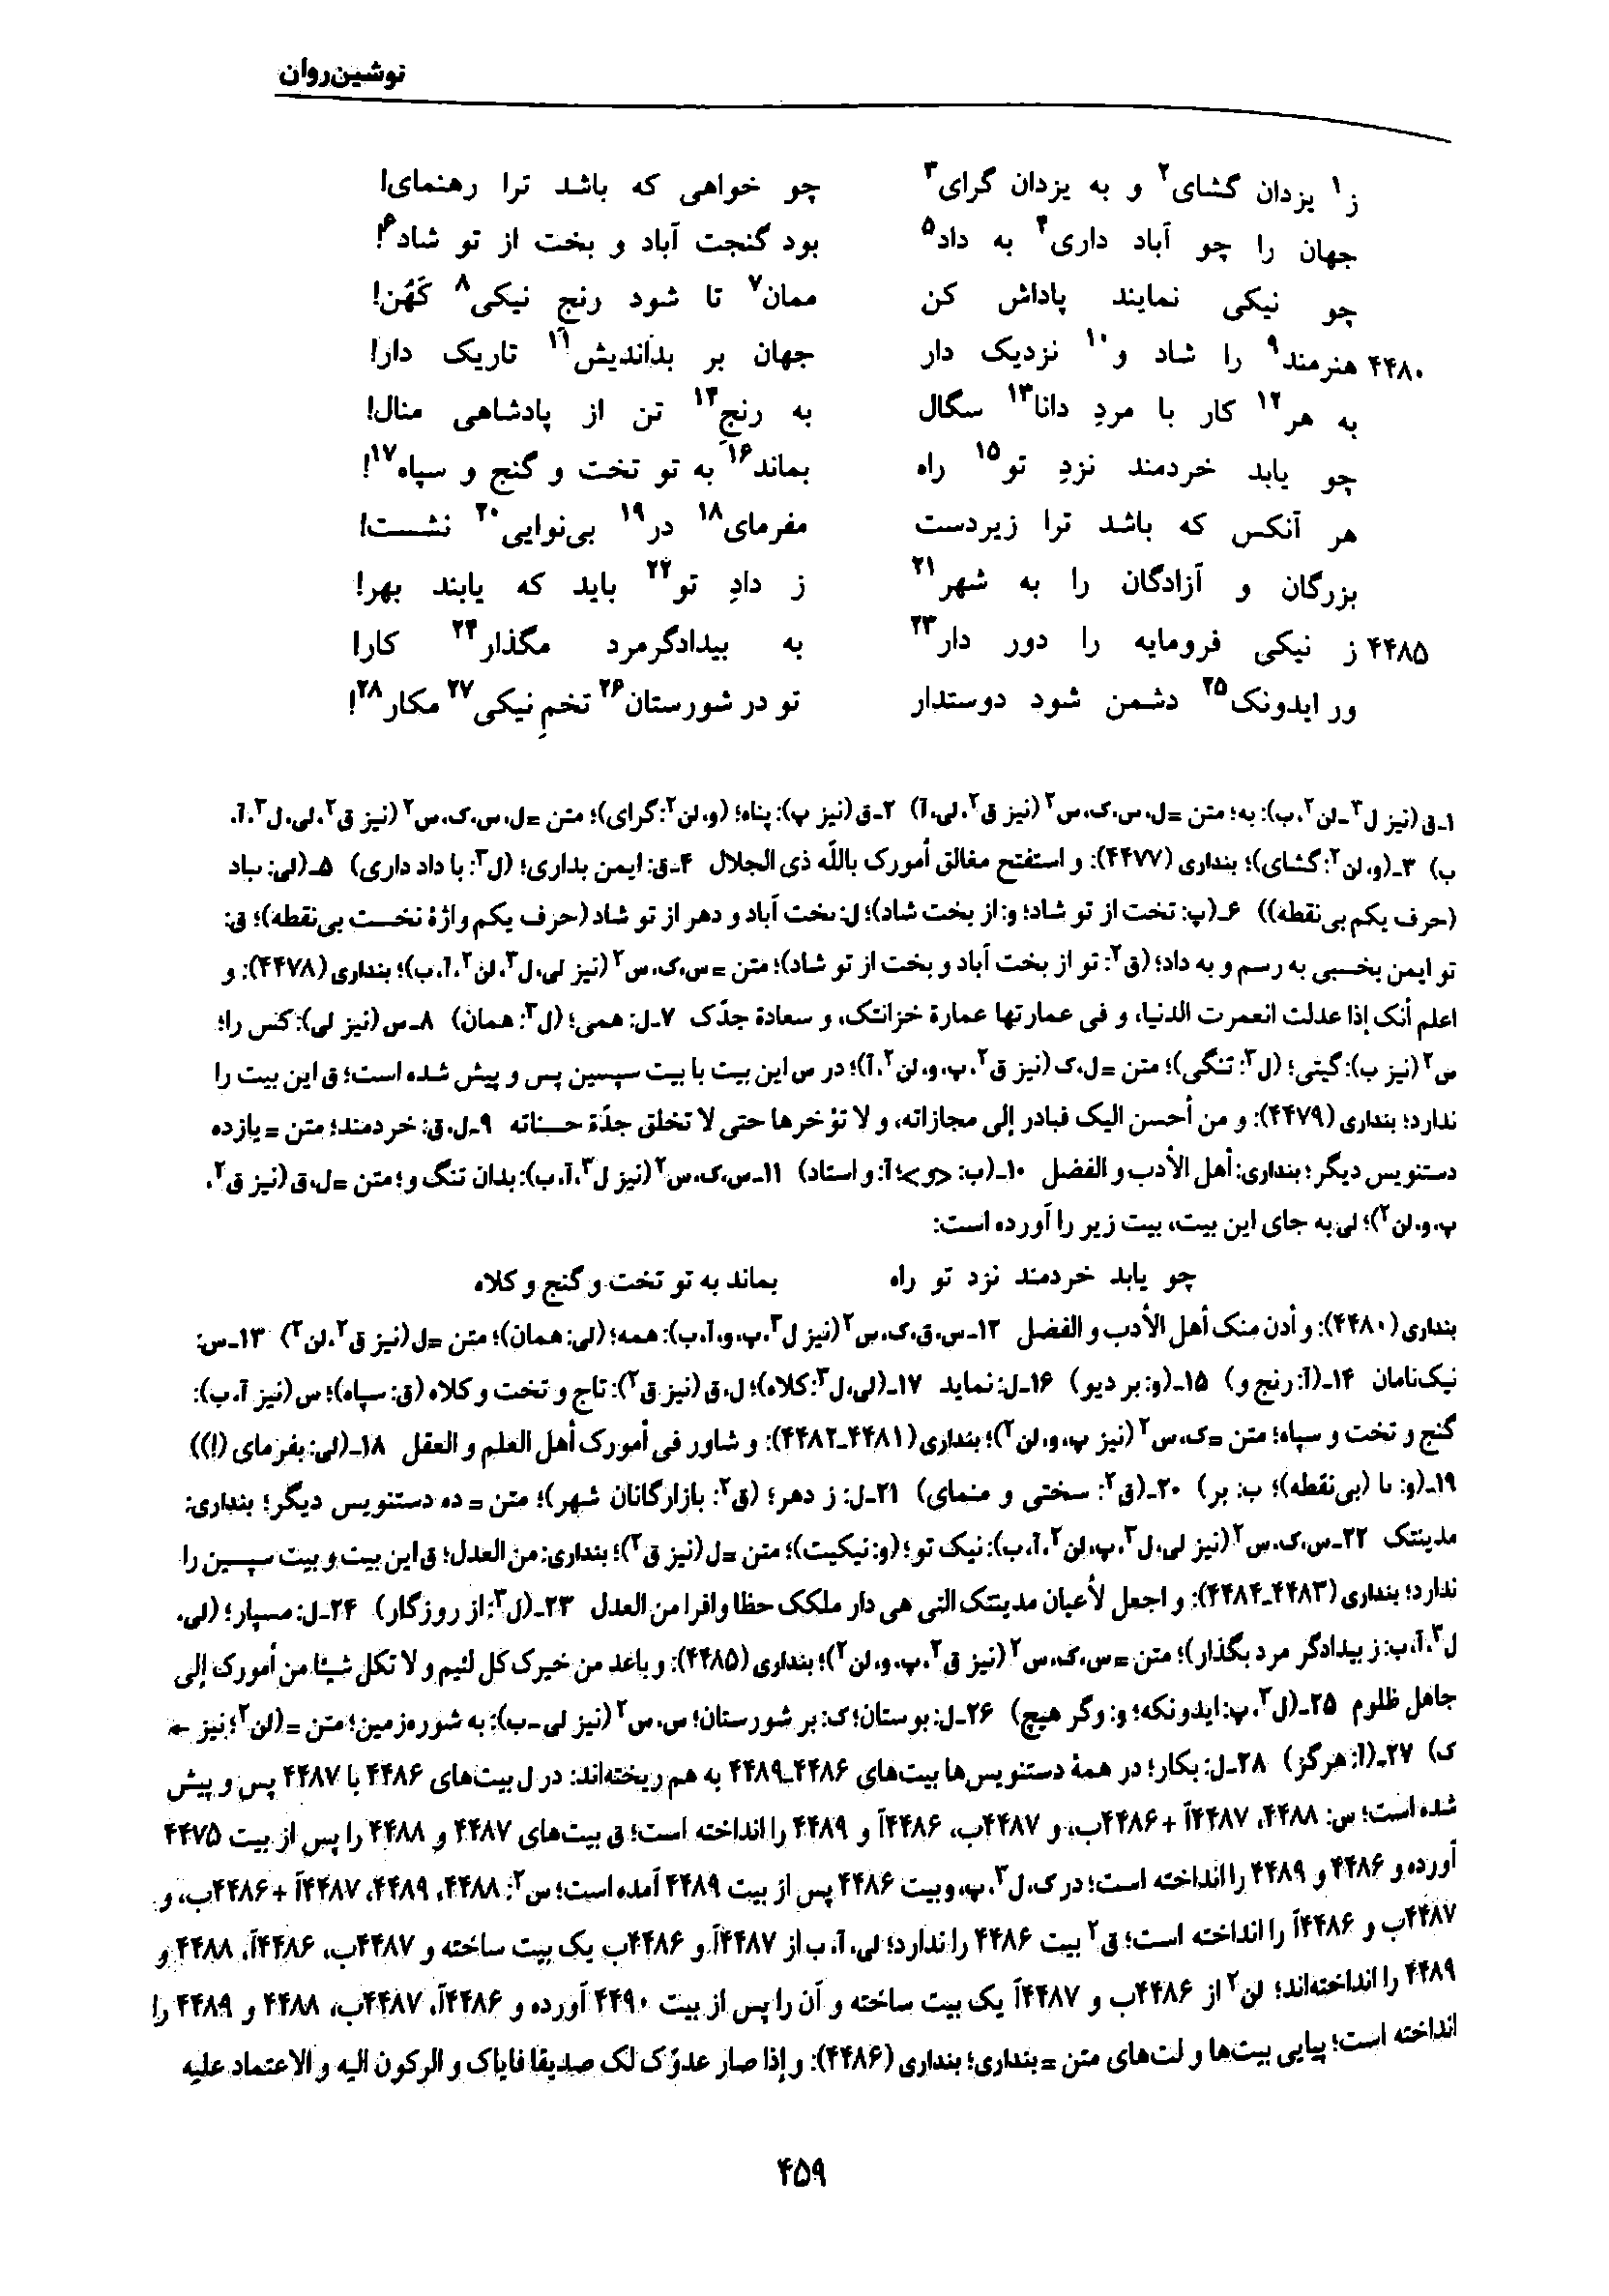 نوشین‌روان
ز۱ یزدان گشای۲ و به یزدان گرای۳ چو خواهی که باشد ترا رهنمای!
جهان را چو آباد داری۴ به داد۵ بود گنجت آباد و بخت از تو شاد۶!
چو نیکی نمایند پاداش کن ممان۷ تا شود رنجِ نیکی۸ کَهُن!
۴۴۸۰ هنرمند۹ را شاد و۱۰ نزدیک دار جهان بر بداندیش۱۱ تاریک دار!
به هر۱۲ کار با مردِ دانا۱۳ سگال به رنجِ۱۴ تن از پادشاهی منال!
چو یابد خردمند نزدِ تو۱۵ راه بماند۱۶ به تو تخت و گنج و سپاه۱۷!
هر آنکس که باشد ترا زیردست مفرمای۱۸ در۱۹ بی‌نوایی۲۰ نشست!
بزرگان و آزادگان را به شهر۲۱ ز دادِ تو۲۲ باید که یابند بهر!
۴۴۸۵ ز نیکی فرومایه را دور دار۲۳ به بیدادگرمرد مگذار۲۴ کار!
ور ایدونک۲۵ دشمن شود دوستدار تو در شورستان۲۶ تخمِ نیکی۲۷ مکار۲۸!
۱ـ ق (نیز ل۳ـ لن۲، ب): به؛ متن = ل، س، ک، س۲ (نیز ق۲، لی، آ) ۲ـ ق (نیز پ): پناه؛ (و، لن۲: گرای)؛ متن = ل، س، ک، س۲ (نیز ق۲، لی، ل۳، آ،
ب) ۳ـ (و، لن۲: گشای)؛ بنداری (۴۴۷۷): و استفتح مغالق أمورک باللّه ذی الجلال ۴ـ ق: ایمن بداری؛ (ل۳: با داد داری) ۵ـ (لی: ٮاد
(حرف یکم بی‌نقطه)) ۶ـ (پ: تخت از تو شاد؛ و: از بخت شاد)؛ ل: ٮخت آباد و دهر از تو شاد (حرف یکم واژهٔ نخست بی‌نقطه)؛ ق:
تو ایمن بخسبی به رسم و به داد؛ (ق۲: تو از بخت آباد و بخت از تو شاد)؛ متن = س، ک، س۲ (نیز لی، ل۳، لن۲، آ، ب)؛ بنداری (۴۴۷۸): و
اعلم أنک إذا عدلت انعمرت الدنیا، و فی عمارتها عمارة خزانتک، و سعادة جدّک ۷ـ ل: همی؛ (ل۳: همان) ۸ـ س (نیز لی): کس را؛
س۲ (نیز ب): گیتی؛ (ل۳: تنگی)؛ متن = ل، ک (نیز ق۲، پ، و، لن۲، آ)؛ در س این بیت با بیت سپسین پس و پیش شده است؛ ق این بیت را
ندارد؛ بنداری (۴۴۷۹): و من أحسن الیک فبادر إلی مجازاته، و لا تؤخرها حتی لا تخلق جدّة حسناته ۹ـ ل، ق: خردمند؛ متن = یازده
دستنویس دیگر؛ بنداری: أهل الأدب و الفضل ۱۰ـ (ب: <و>؛ آ: و استاد) ۱۱ـ س، ک، س۲ (نیز ل۳، آ، ب): بدان تنگ و؛ متن = ل، ق (نیز ق۲،
پ، و، لن۲)؛ لی به جای این بیت، بیت زیر را آورده است:
چو یابد خردمند نزد تو راه بماند به تو تخت و گنج و کلاه
بنداری (۴۴۸۰): و أدن منک أهل الأدب و الفضل ۱۲ـ س، ق، ک، س۲ (نیز ل۳، پ، و، آ، ب): همه؛ (لی: همان)؛ متن = ل (نیز ق۲، لن۲) ۱۳ـ س:
نیک‌نامان ۱۴ـ (آ: رنج و) ۱۵ـ (و: بر دیو) ۱۶ـ ل: نماید ۱۷ـ (لی، ل۳: کلاه)؛ ل، ق (نیز ق۲): تاج و تخت و کلاه (ق: سپاه)؛ س (نیز آ، ب):
گنج و تخت و سپاه؛ متن = ک، س۲ (نیز پ، و، لن۲)؛ بنداری (۴۴۸۱ـ۴۴۸۲): و شاور فی أمورک أهل العلم و العقل ۱۸ـ (لی: بفرمای (!))
۱۹ـ (و: ٮا (بی‌نقطه)؛ ب: بر) ۲۰ـ (ق۲: سختی و منمای) ۲۱ـ ل: ز دهر؛ (ق۲: بازارگانان شهر)؛ متن = ده دستنویس دیگر؛ بنداری:
مدینتک ۲۲ـ س، ک، س۲ (نیز لی، ل۳، پ، لن۲، آ، ب): نیک تو؛ (و: نیکیت)؛ متن = ل (نیز ق۲)؛ بنداری: من العدل؛ ق این بیت و بیت سپسین را
ندارد؛ بنداری (۴۴۸۳ـ۴۴۸۴): و اجعل لأعیان مدینتک التی هی دار ملکک حظا وافرا من العدل ۲۳ـ (ل۳: از روزگار) ۲۴ـ ل: مسپار؛ (لی،
ل۳، آ، ب: ز بیدادگر مرد بگذار)؛ متن = س، ک، س۲ (نیز ق۲، پ، و، لن۲)؛ بنداری (۴۴۸۵): و باعد من خیرک کل لئیم و لا تکل شیئا من أمورک إلی
جاهل ظلوم ۲۵ـ (ل۳، پ: ایدونکه؛ و: وگر هیچ) ۲۶ـ ل: بوستان؛ ک: بر شورستان؛ س، س۲ (نیز لی ـ ب): به شوره‌زمین؛ متن = (لن۲؛ نیز ←
ک) ۲۷ـ (آ: هرگز) ۲۸ـ ل: بکار؛ در همهٔ دستنویس‌ها بیت‌های ۴۴۸۶ـ۴۴۸۹ به هم ریخته‌اند: در ل بیت‌های ۴۴۸۶ با ۴۴۸۷ پس و پیش
شده است؛ س: ۴۴۸۸، ۴۴۸۷آ + ۴۴۸۶ب، و ۴۴۸۷ب، ۴۴۸۶آ و ۴۴۸۹ را انداخته است؛ ق بیت‌های ۴۴۸۷ و ۴۴۸۸ را پس از بیت ۴۴۷۵
آورده و ۴۴۸۶ و ۴۴۸۹ را انداخته است؛ در ک، ل۳، پ، و بیت ۴۴۸۶ پس از بیت ۴۴۸۹ آمده است؛ س۲: ۴۴۸۸، ۴۴۸۹، ۴۴۸۷آ + ۴۴۸۶ب، و
۴۴۸۷ب و ۴۴۸۶آ را انداخته است؛ ق۲ بیت ۴۴۸۶ را ندارد؛ لی، آ، ب از ۴۴۸۷آ و ۴۴۸۶ب یک بیت ساخته و ۴۴۸۷ب، ۴۴۸۶آ، ۴۴۸۸ و
۴۴۸۹ را انداخته‌اند؛ لن۲ از ۴۴۸۶ب و ۴۴۸۷آ یک بیت ساخته و آن را پس از بیت ۴۴۹۰ آورده و ۴۴۸۶آ، ۴۴۸۷ب، ۴۴۸۸ و ۴۴۸۹ را
انداخته است؛ پیایی بیت‌ها و لت‌های متن = بنداری؛ بنداری (۴۴۸۶): و إذا صار عدوّک لک صدیقا فایاک و الرکون الیه و الاعتماد علیه
۴۵۹